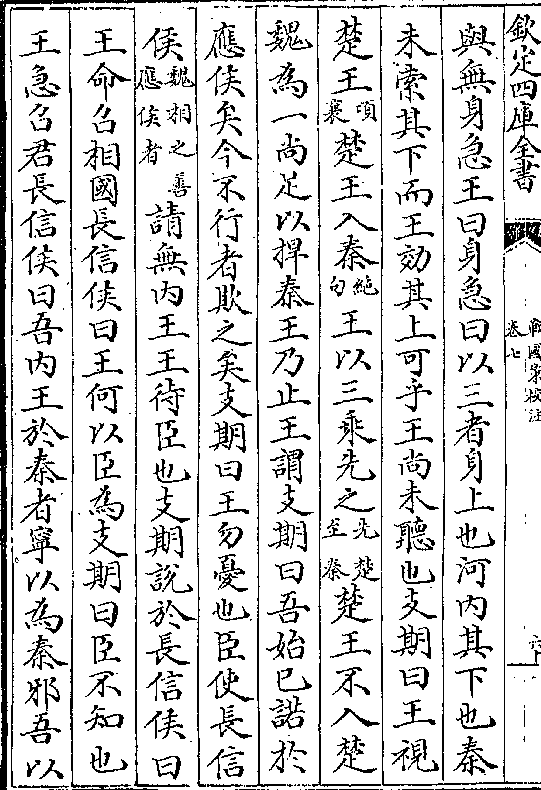 欽定四庫全書
戰國策校注
卷七
與無身急王曰身急曰以三者身上也河内其下也秦
未索其下而王効其上可乎王尚未聽也支期曰王視
楚王頃襄楚王入秦絶句王以三乘先之先楚至秦楚王不入楚
魏為一尚足以捍秦王乃止王謂支期曰吾始已諾於
應侯矣今不行者欺之矣支期曰王勿憂也臣使長信
侯魏相之善應侯者請無内王王待臣也支期說於長信侯曰
王命召相國長信侯曰王何以臣為支期曰臣不知也
王急召君長信侯曰吾内王於秦者寧以為秦邪吾以